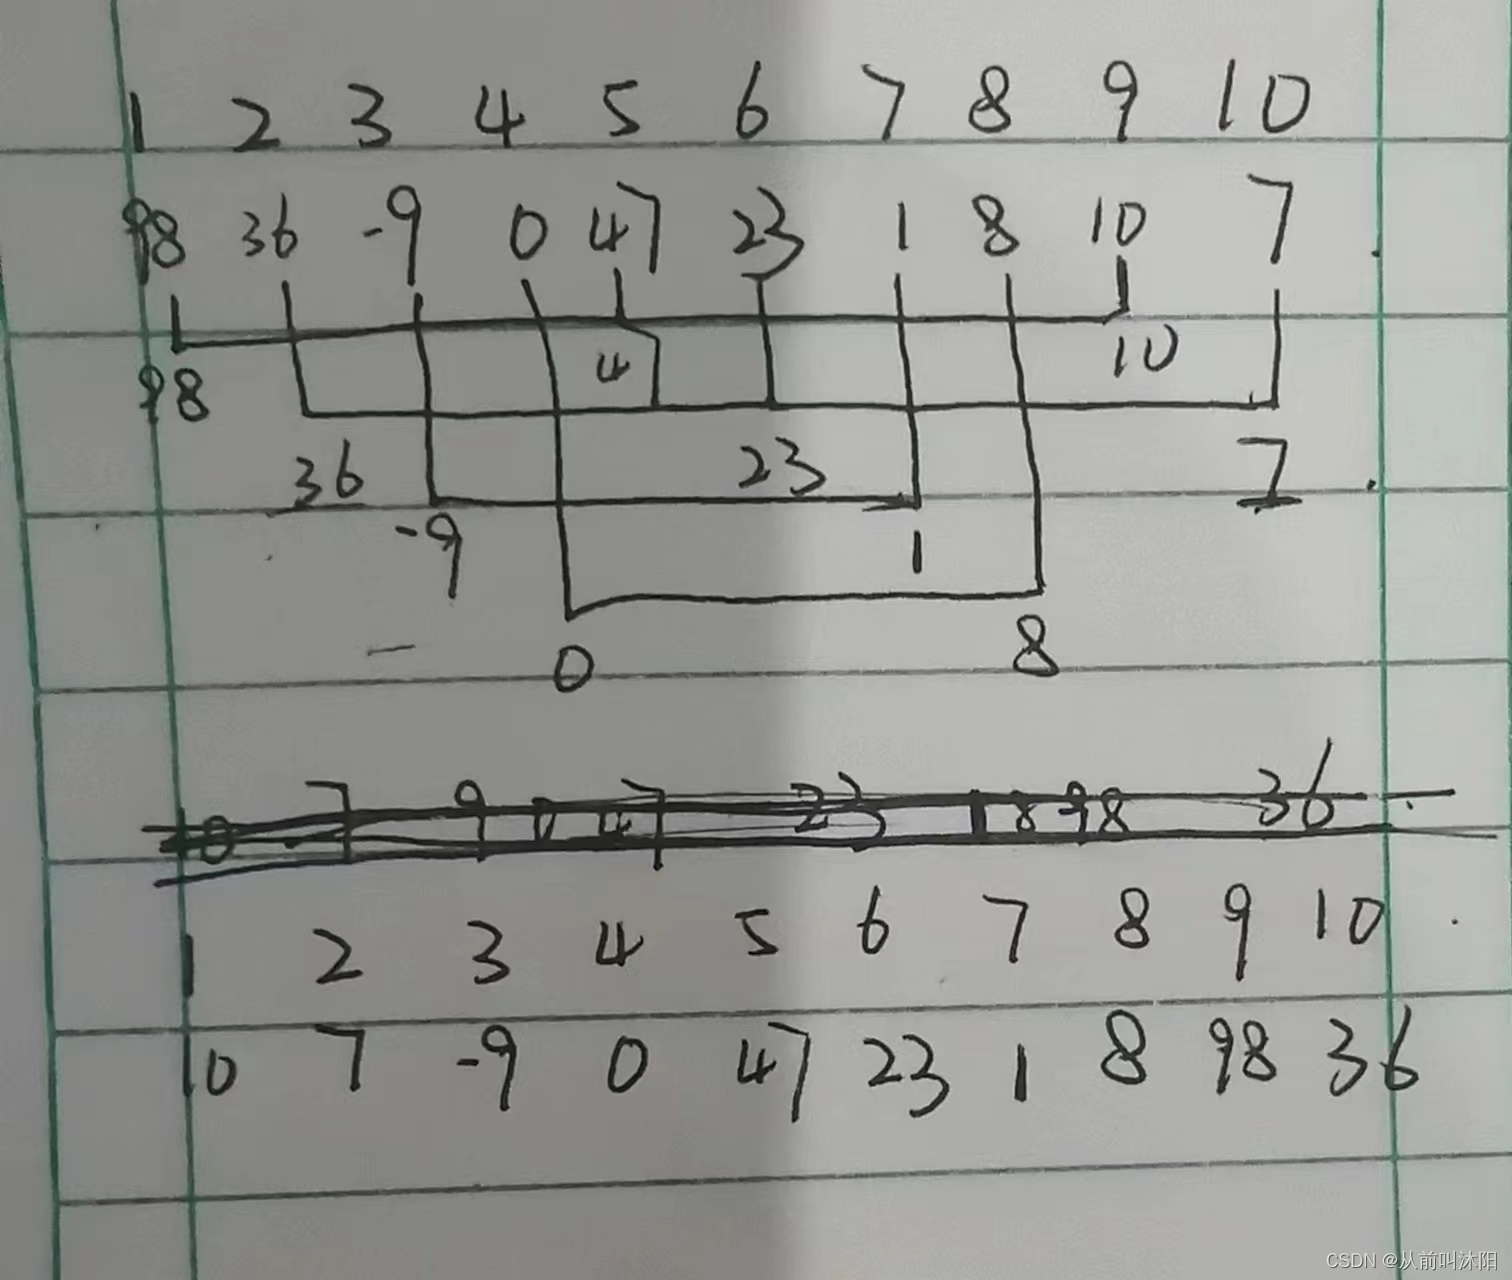 1 2 3 4 5 6 7 8 9 10
98 36 -9 0 47 23 1 8 10 7
4 10
98
36 23 7
-9 1
0 8
10 7 9 0 47 23 1 8 98 36
1 2 3 4 5 6 7 8 9 10
10 7 -9 0 47 23 1 8 98 36
CSDN @从前叫沐阳